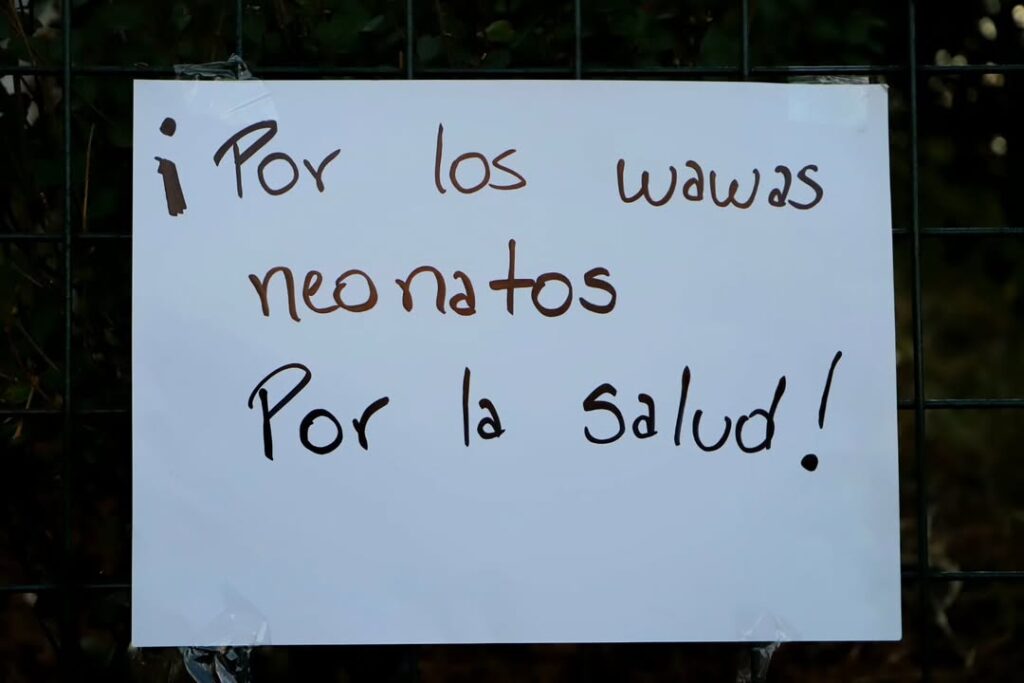 ¡Por los wawas
neonatos
Por la salud!